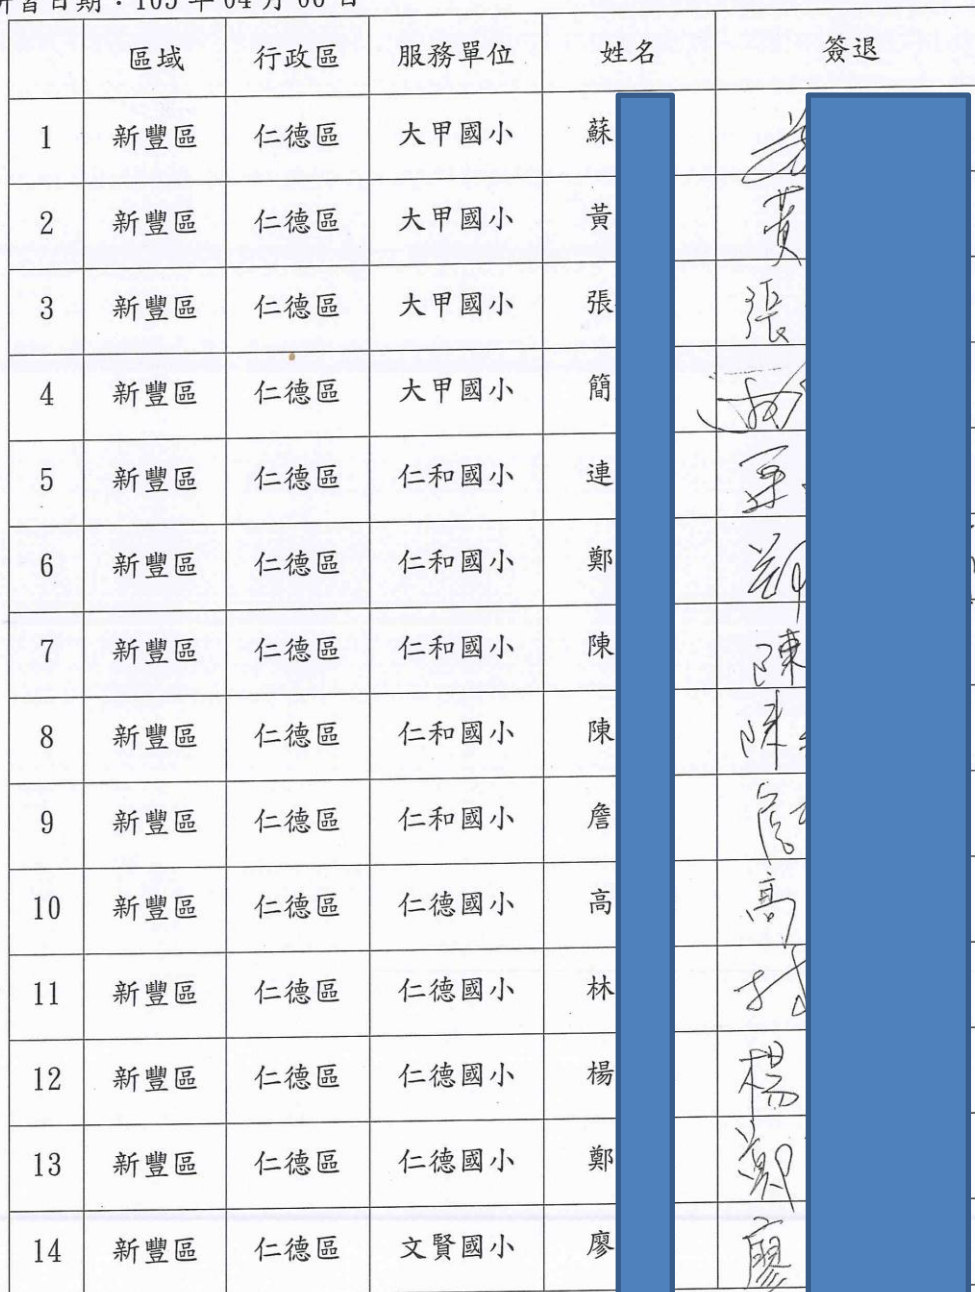 研習日期：105 年 04 月 06 日
區域 行政區 服務單位 姓名 簽退
1 新豐區 仁德區 大甲國小 蘇
2 新豐區 仁德區 大甲國小 黃 黃
3 新豐區 仁德區 大甲國小 張 張
4 新豐區 仁德區 大甲國小 簡
5 新豐區 仁德區 仁和國小 連
6 新豐區 仁德區 仁和國小 鄭 鄭
7 新豐區 仁德區 仁和國小 陳 陳
8 新豐區 仁德區 仁和國小 陳 陳
9 新豐區 仁德區 仁和國小 詹 詹
10 新豐區 仁德區 仁德國小 高 高
11 新豐區 仁德區 仁德國小 林 林
12 新豐區 仁德區 仁德國小 楊 楊
13 新豐區 仁德區 仁德國小 鄭 鄭
14 新豐區 仁德區 文賢國小 廖 廖